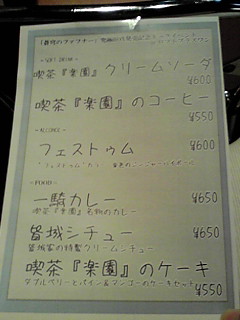 喫茶『楽園』クリームソーダ
¥600
喫茶『楽園』のコーヒー
¥550
フェストゥム ¥600
-FOOD-
一騎カレー ¥650
喫茶『楽園』名物のカレー
皆城シチュー ¥650
皆城家の特製クリームシチュー
喫茶『楽園』のケーキ
ダブルベリーとパイン&マンゴーのケーキセット ¥550